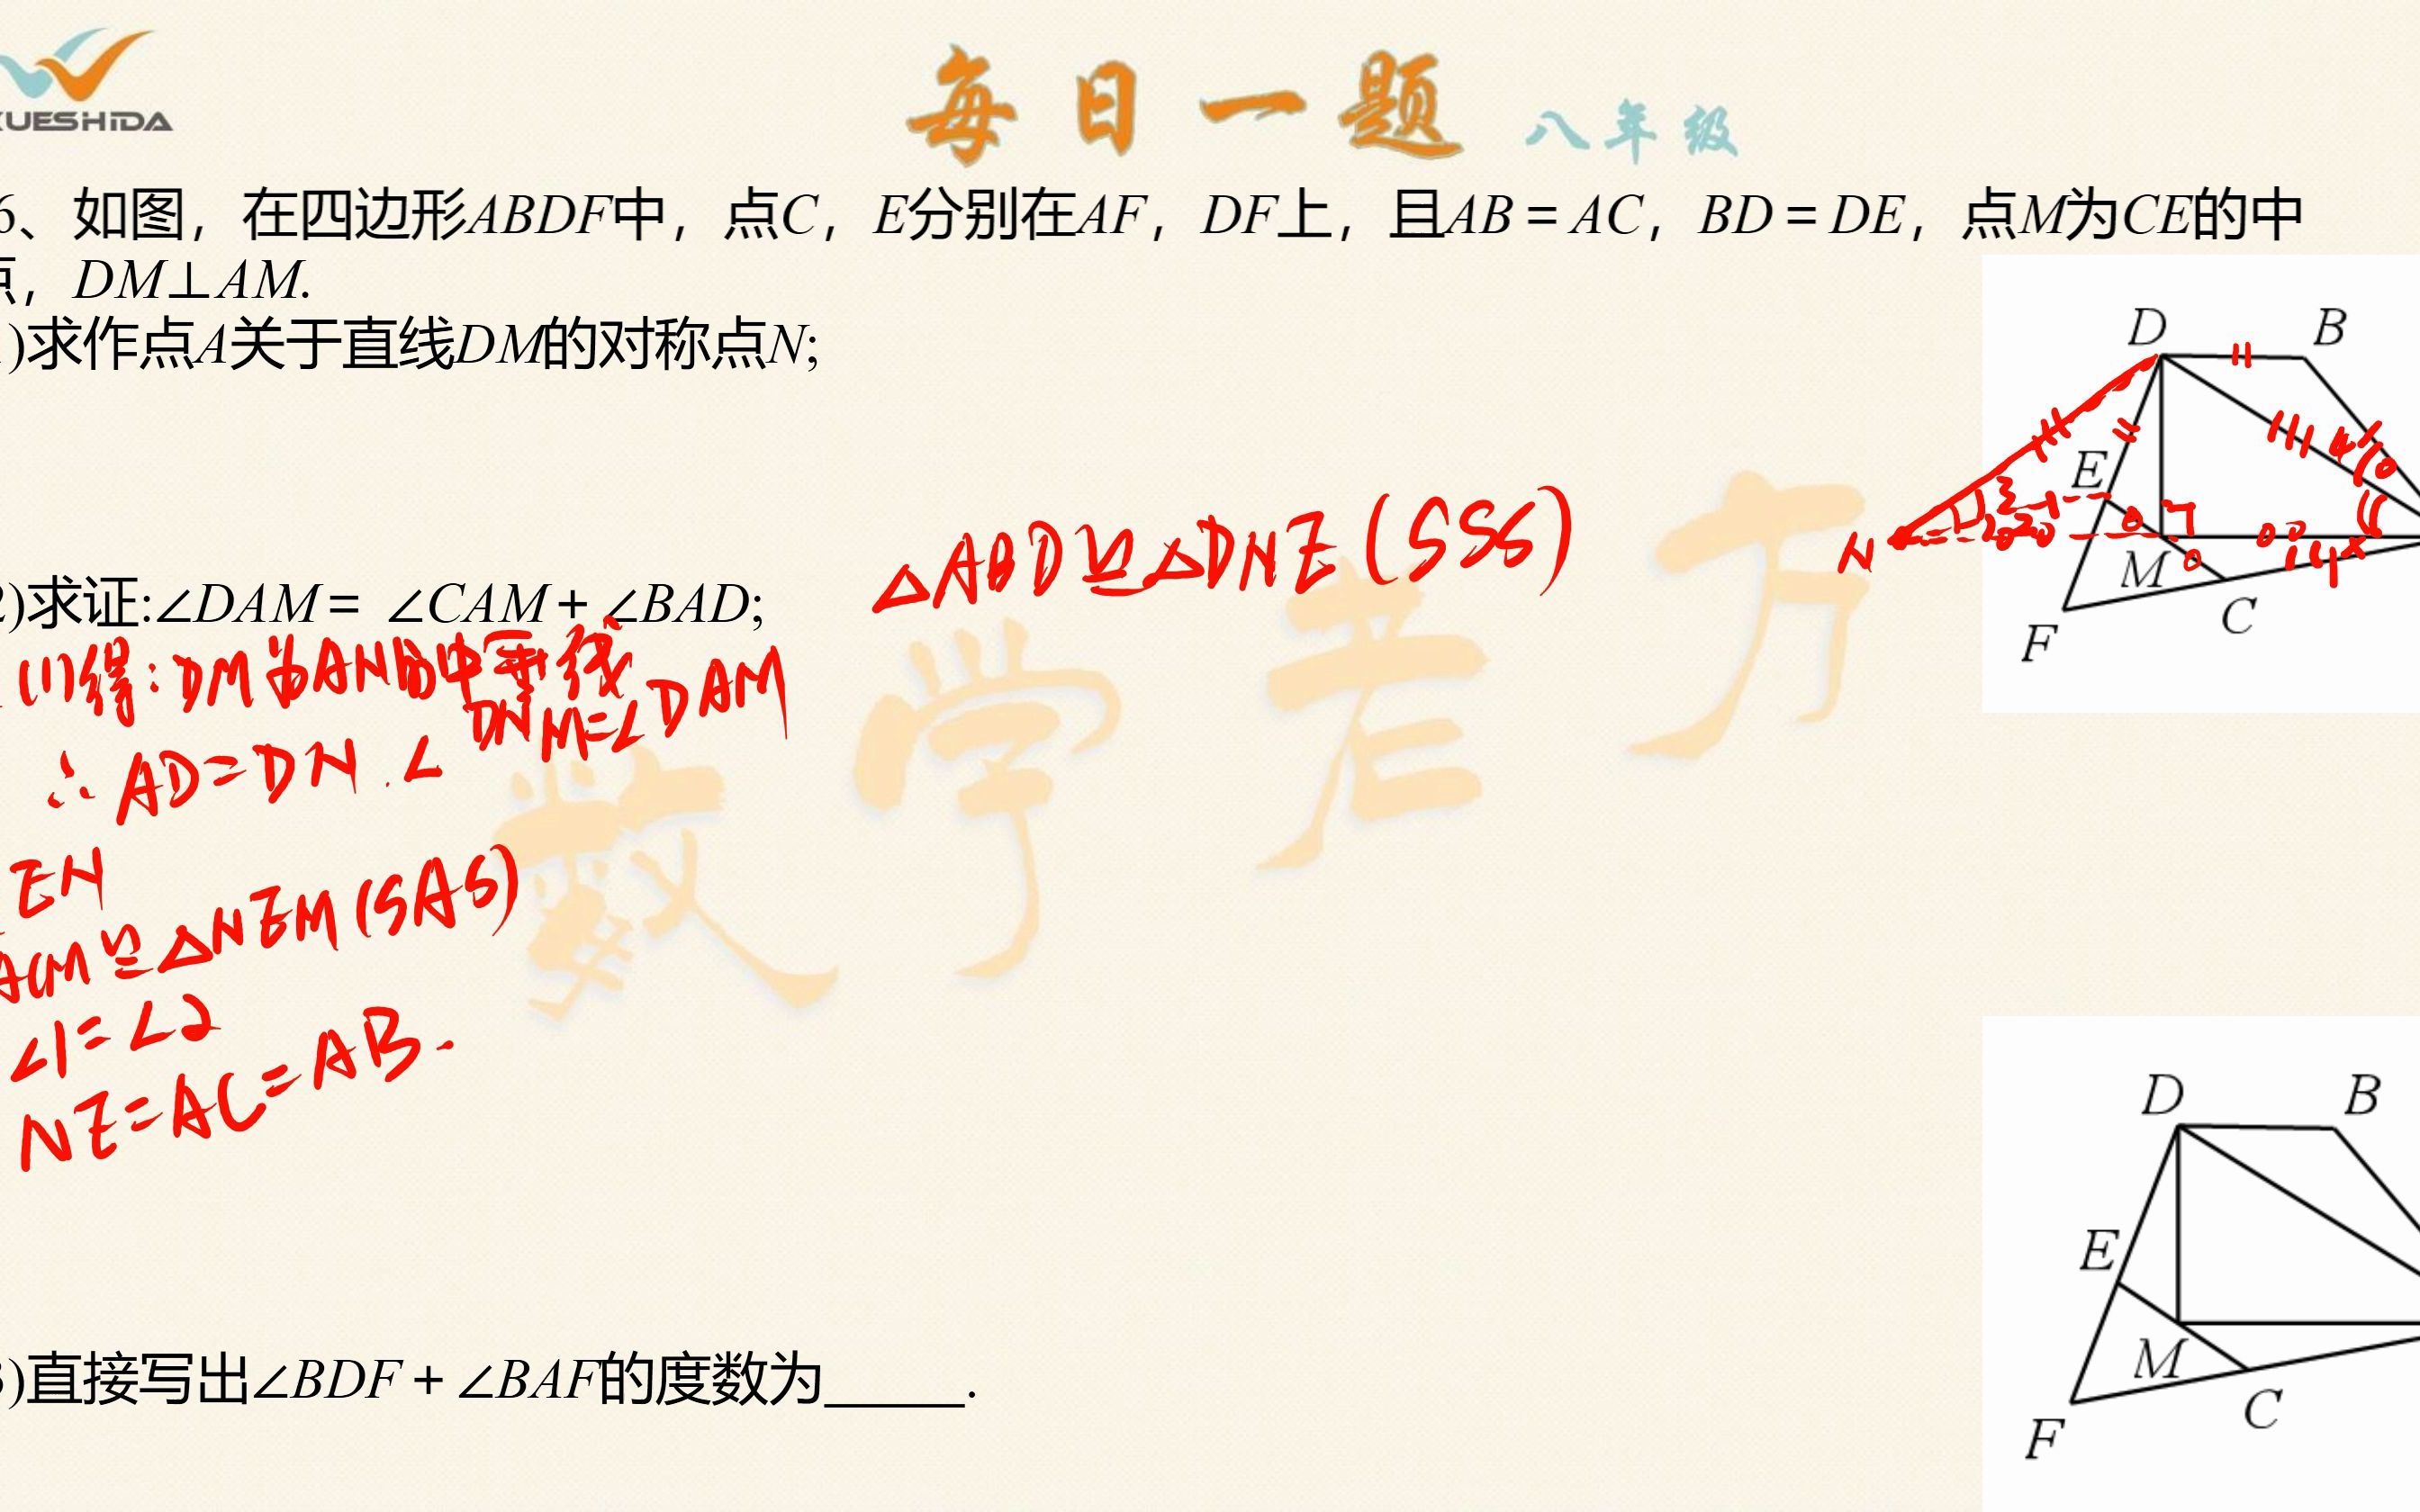 XUESHiDA
每日一题 八年级
6、如图，在四边形ABDF中，点C，E分别在AF，DF上，且AB = AC，BD = DE，点M为CE的中
点，DM⊥AM.
)求作点A关于直线DM的对称点N;
△ABD≌△DNE(SSS)
2)求证:∠DAM = ∠CAM + ∠BAD;
(1)得:DM为AN的中垂线
∴AD=DN.∠DNM=∠DAM
EN
ACM≌△NEM(SAS)
∠1=∠2
NE=AC=AB.
3)直接写出∠BDF + ∠BAF的度数为_____.
数学老方
D B
E
N
M
C
F
D B
E
M
C
F